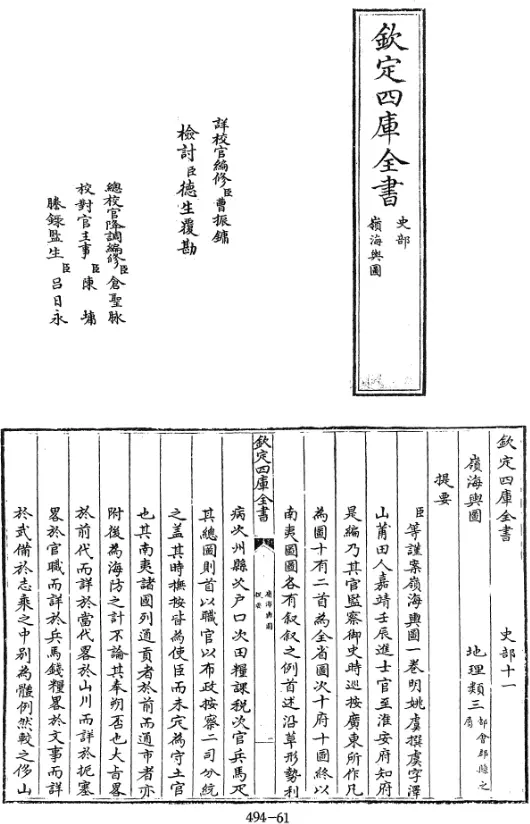 欽定四庫全書
史部
嶺海輿圖
詳校官編修臣曹振鏞
檢討臣德生覆勘
總校官降調編修臣倉聖脉
校對官主事臣陳墉
謄錄監生臣呂日永
欽定四庫全書 史部十一
嶺海輿圖 地理類三 都會郡縣之屬
提要
臣等謹案嶺海輿圖一卷明姚虞撰虞字澤
山莆田人嘉靖壬辰進士官至淮安府知府
是編乃其官監察御史時巡按廣東所作凡
為圖十有二首為全省圖次十府十圖終以
南夷圖圖各有叙叙之例首述沿革形勢利
欽定四庫全書 嶺海輿圖 提要 一
病次州縣次户口次田糧課税次官兵馬疋
其總圖則首以職官以布政按察二司分統
之盖其時撫按皆為使臣而未定為守土官
也其南夷諸國列通貢者於前而通市者亦
附後為海防之計不論其奉朔否也大㫖畧
於前代而詳於當代畧於山川而詳於扼塞
畧於官職而詳於兵馬錢糧畧於文事而詳
於武備於志乘之中别為體例然較之侈山
494-61